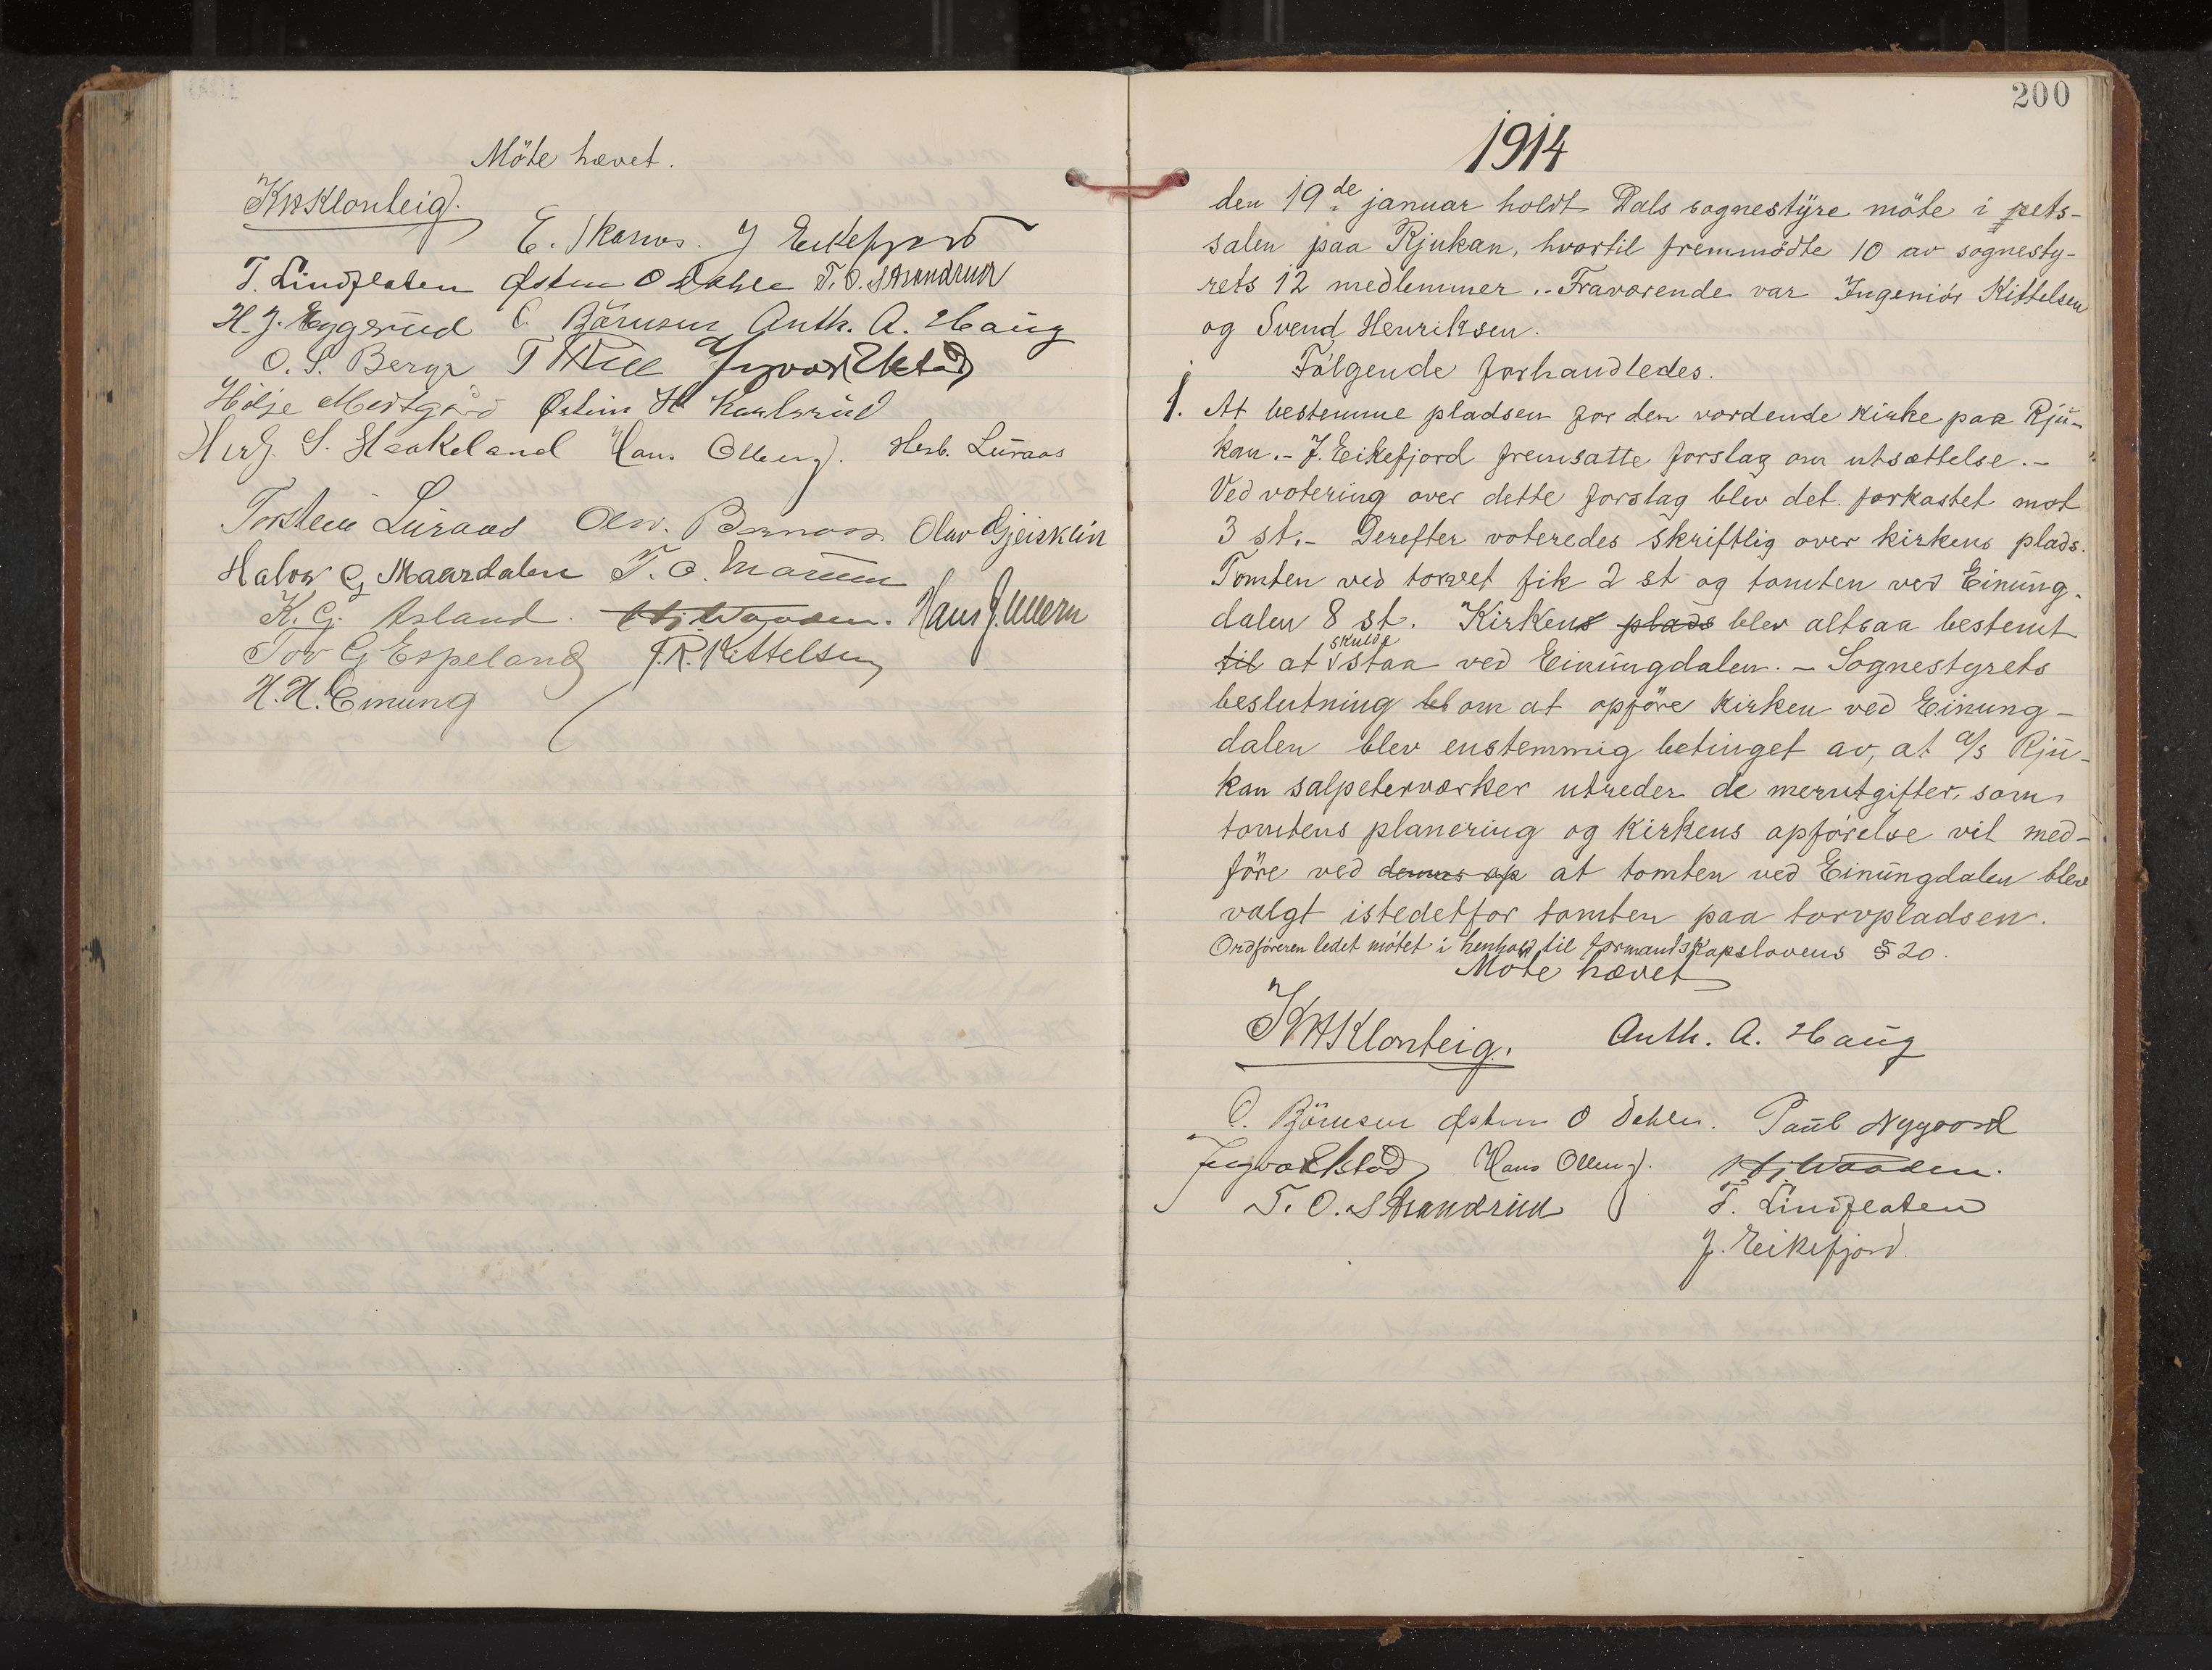 Möte hævet.
KHKlonteig.
E. Skarnes. J Eikefjord
T. Lindflaten Østen O Dahle T. O. Strandrud
H. J. Eggerud O. Björnsen Anth. A. Haug
O. S. Berge T Ingvar Ekstad
Hölje Midtgård Östein H. Karlsrud
S. Haakeland Hans Olberg. Herb. Luraas
Torstein Luraas Olav Gjeisklin
Halvor G Maardalen T. O. Marum
K. G. Asland. Hj Waaden. Hans J. Ullern
Tov G Espeland J.R. Kittelsen
H. H. Einung
200
1914
den 19de januar holdt Dals sognestyre möte i rets-
salen paa Rjukan, hvortil fremmödte 10 av sognesty-
rets 12 medlemmer. - Fraværende var Ingeniör Kittelsen
og Svend Henriksen.
Fölgende forhandledes.
1. At bestemme pladsen for den vordende kirke paa Rju-
kan. - J. Eikefjord fremsatte forslag om utsættelse. -
Ved votering over dette forslag blev det forkastet mot
3 st. - Derefter voteredes skriftlig over kirkens plads.
Tomten ved torvet fik 2 st og tomten ved Einung-
dalen 8 st. Kirkens plads blev altsaa bestemt
til at skulde staa ved Einungdalen. - Sognestyrets
beslutning bl om at opföre kirken ved Einung-
dalen blev enstemmig betinget av, at a/s Rju-
kan salpeterværker utreder de merutgifter, som
tomtens planering og kirkens opförelse vil med-
före ved dennes op at tomten ved Einungdalen blev
valgt istedetfor tomten paa torvpladsen.
Ordföreren ledet mötet i henhold til formandskapslovens § 20.
Möte hævet
KHKlonteig. Anth. A. Haug
O. Björnsen Østen O Dahle. Paul Nygaard
Ingvar Ekstad Hans Olberg. Hj Waaden.
T. O. Strandrud T. Lindflaten
J. Eikefjord.